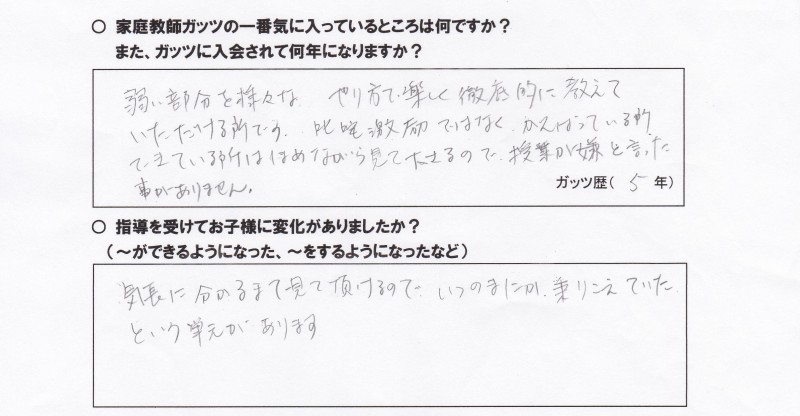 ○ 家庭教師ガッツの一番気に入っているところは何ですか？
また、ガッツに入会されて何年になりますか？
弱い部分を様々な やり方で楽しく徹底的に教えて
いただける所です。叱咤激励ではなく、がんばっている所
できている所はほめながら見て下さるので、授業が嫌と言った
事がありません。
ガッツ歴（ 5 年）
○ 指導を受けてお子様に変化がありましたか？
（～ができるようになった、～をするようになったなど）
気長に分かるまで見て頂けるので、いつのまにか、乗りこえていた
という単元があります